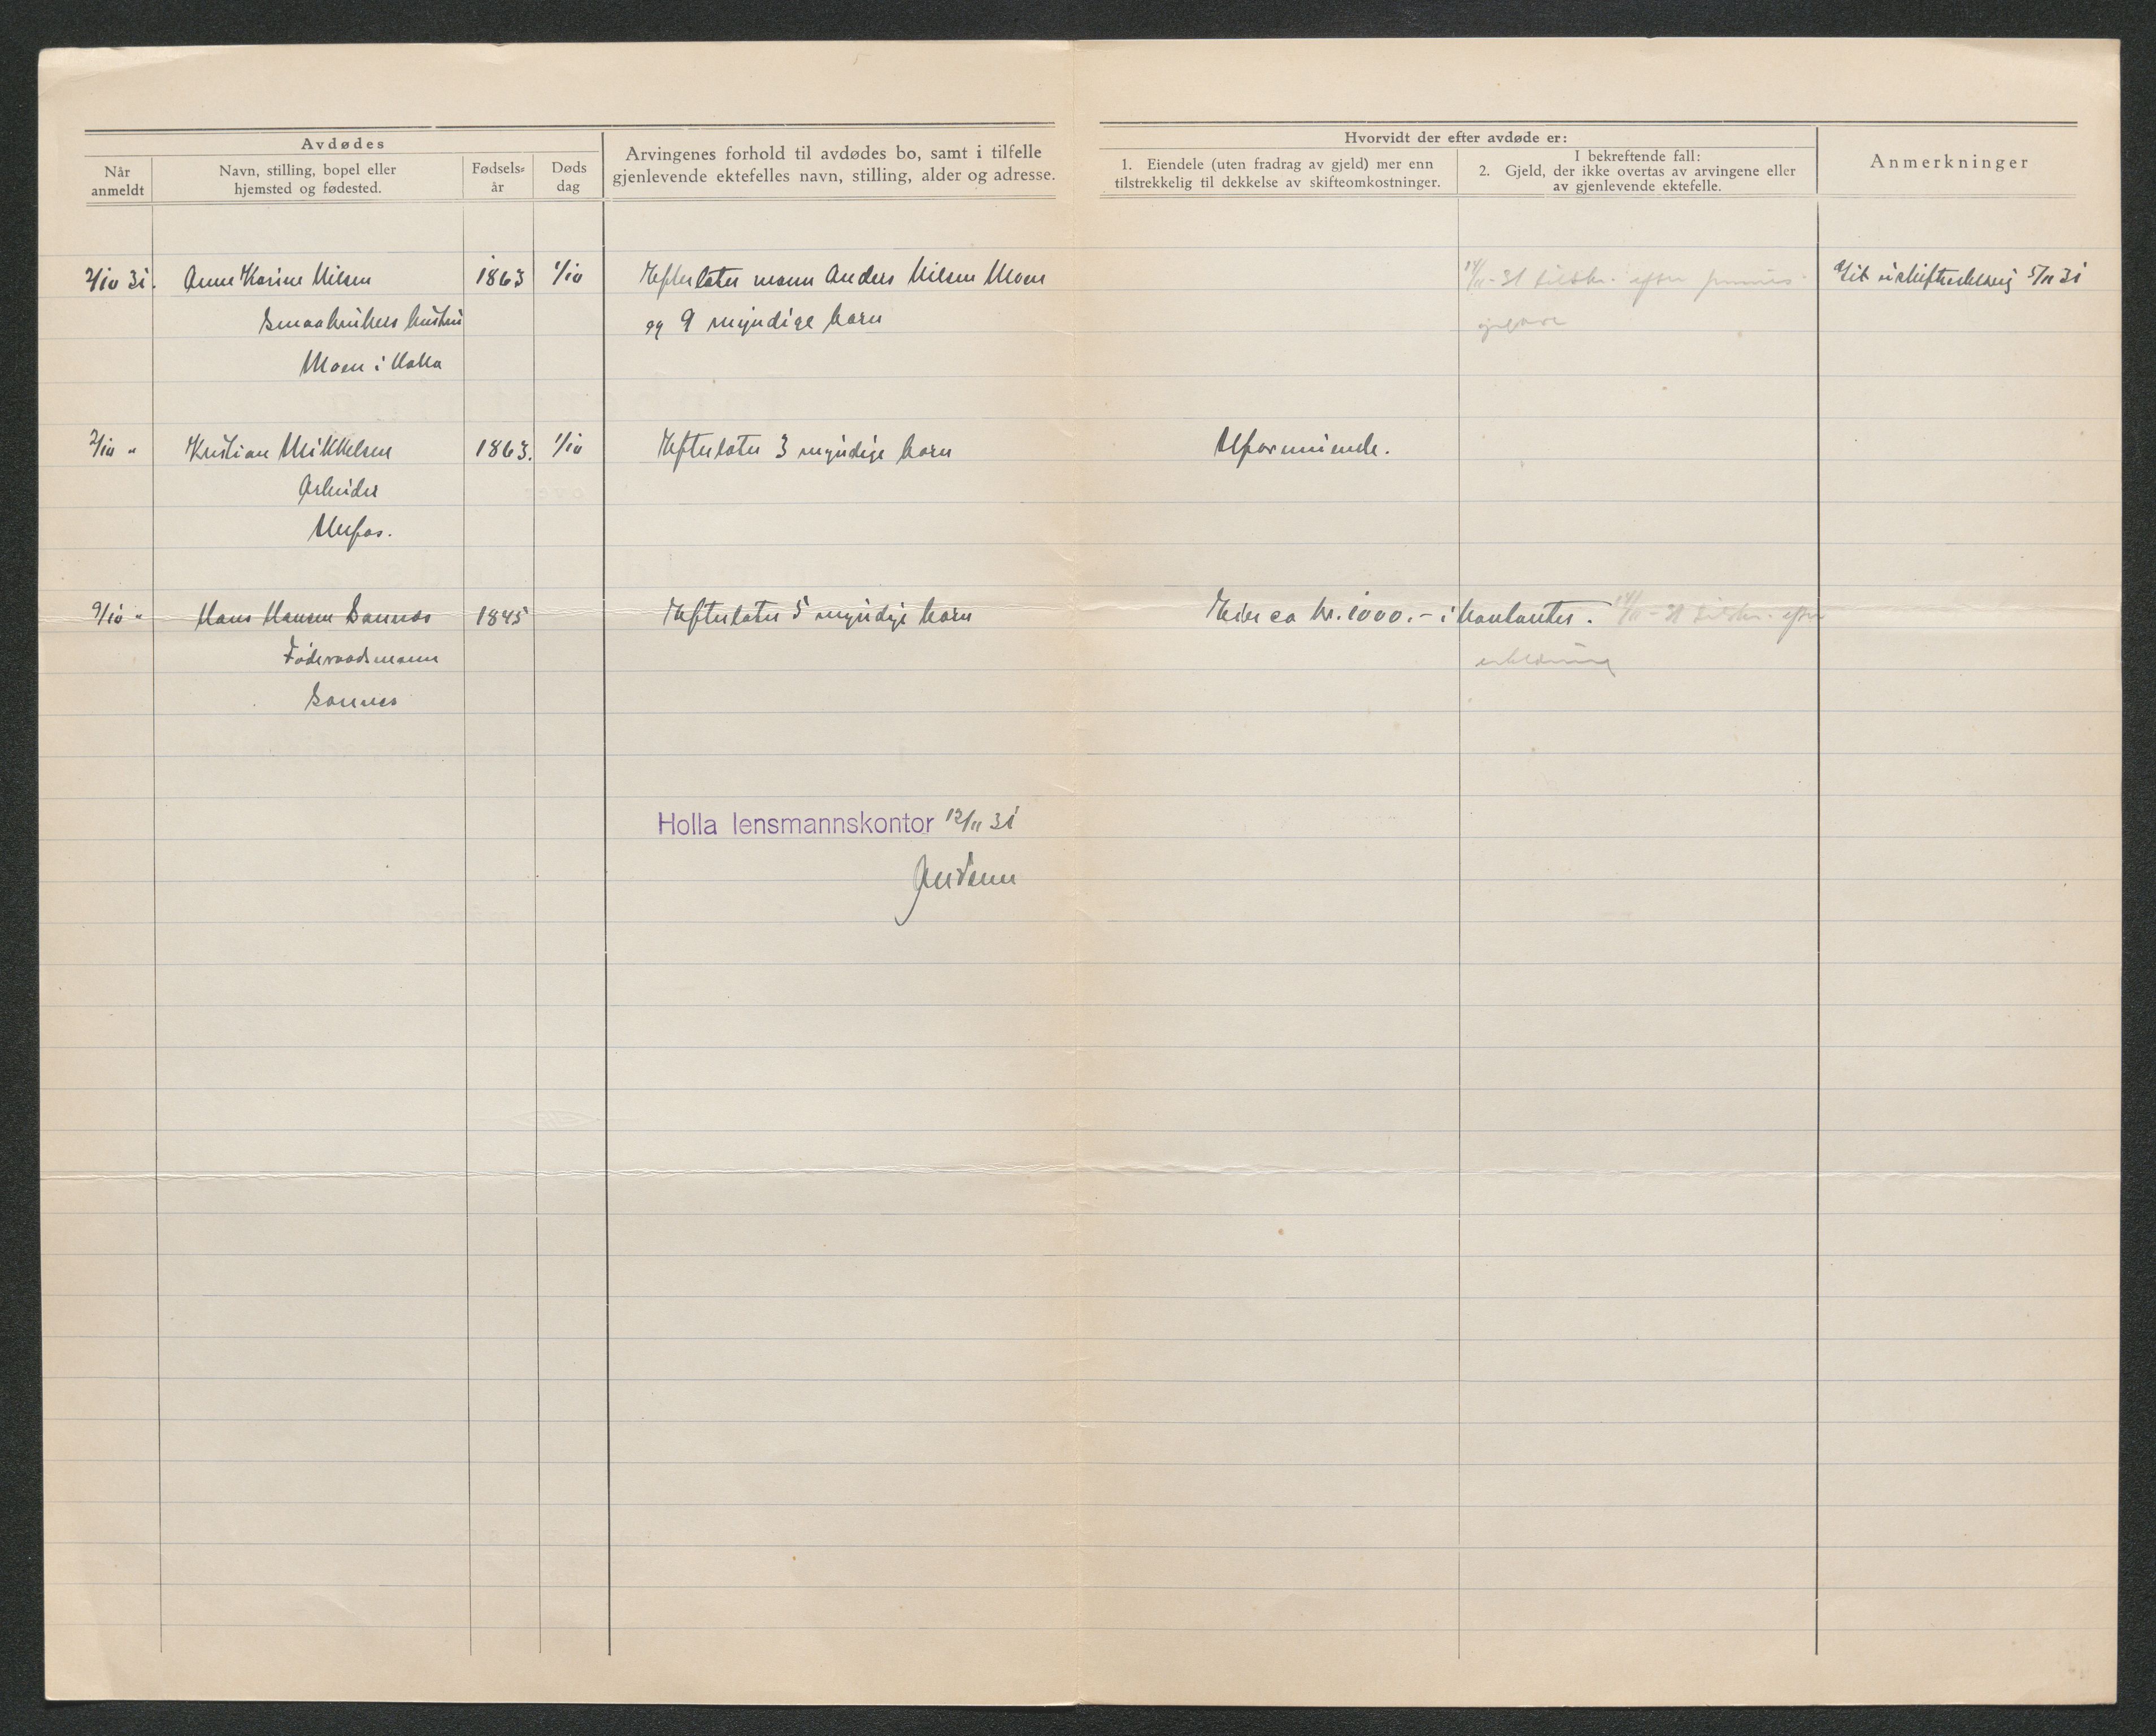 Avdødes
Når anmeldt
Navn, stilling, bopel eller hjemsted og fødested.
Fødsels-år
Døds dag
Arvingenes forhold til avdødes bo, samt i tilfelle
gjenlevende ektefelles navn, stilling, alder og adresse.
Hvorvidt der efter avdøde er:
1. Eiendele (uten fradrag av gjeld) mer enn
tilstrekkelig til dekkelse av skifteomkostninger.
I bekreftende fall:
2. Gjeld, der ikke overtas av arvingene eller
av gjenlevende ektefelle.
Anmerkninger
2/10 31. Anne Karine Nilsen 1863 1/10 Efterlater mann Anders Nilsen Moen 14/11-31 efter 5/11 31
Smaabrukers hustru og 9 myndige barn
Moen i Holla
2/10 " Kristian Mikkelsen 1863. 1/10 Efterlater 3 myndige barn Uformuende.
Arbeider
Ulefos.
9/10 " Hans Hansen Sannes 1845 Efterlater 5 myndige barn Eier ca kr. 1000.- i kontanter. 14/11-31 efter
Føderaadsmann erklæring
Sannes
Holla lensmannskontor 12/11 31